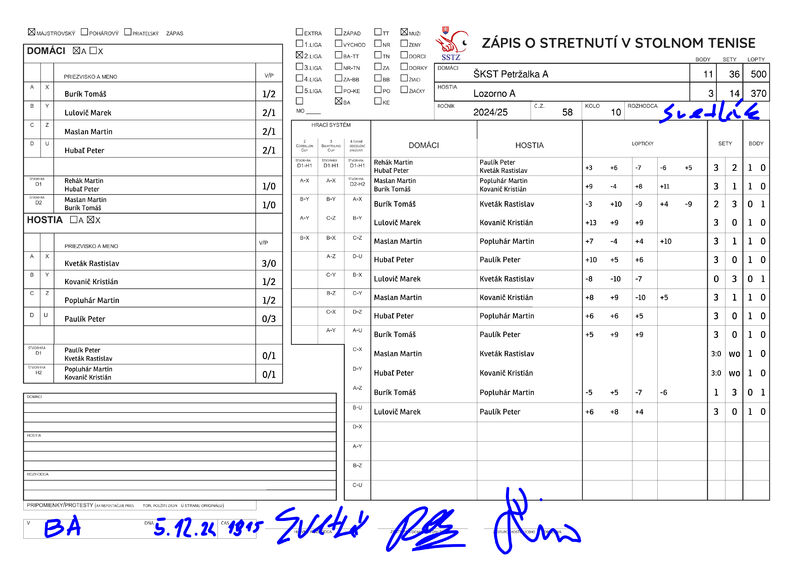 MAJSTROVSKÝ POHÁROVÝ PRIATEĽSKÝ ZÁPAS
DOMÁCI A X
PRIEZVISKO A MENO V/P
A X Burík Tomáš 1/2
B Y Lulovič Marek 2/1
C Z Maslan Martin 2/1
D U Hubaľ Peter 2/1
D1 Rehák Martin 1/0
Hubaľ Peter
D2 Maslan Martin 1/0
Burík Tomáš
HOSTIA A X
PRIEZVISKO A MENO V/P
A X Kveták Rastislav 3/0
B Y Kovanič Kristián 1/2
C Z Popluhár Martin 1/2
D U Paulík Peter 0/3
D1 Paulík Peter 0/1
Kveták Rastislav
H2 Popluhár Martin 0/1
Kovanič Kristián
DOMÁCI
HOSTIA
ROZHODCA
PRIPOMIENKY/PROTESTY
V BA DŇA 5.12.24 ČAS 1915
EXTRA ZÁPAD TT MUŽI
1.LIGA VÝCHOD NR ŽENY
2.LIGA BA-TT TN DORCI
3.LIGA NR-TN ZA DORKY
4.LIGA ZA-BB BB ŽIACI
5.LIGA PO-KE PO ŽIAČKY
BA KE
MO
SSTZ
ZÁPIS O STRETNUTÍ V STOLNOM TENISE
BODY SETY LOPTY
DOMÁCI ŠKST Petržalka A 11 36 500
HOSTIA Lozorno A 3 14 370
ROČNÍK 2024/25 Č.Z. 58 KOLO 10 ROZHODCA Svetlák
HRACÍ SYSTÉM
DOMÁCI HOSTIA LOPTIČKY SETY BODY
D1-H1 D1-H1 D1-H1 Rehák Martin Paulík Peter +3 +6 -7 -6 +5 3 2 1 0
Hubaľ Peter Kveták Rastislav
A-X A-X D2-H2 Maslan Martin Popluhár Martin +9 -4 +8 +11 3 1 1 0
Burík Tomáš Kovanič Kristián
B-Y B-Y A-X Burík Tomáš Kveták Rastislav -3 +10 -9 +4 -9 2 3 0 1
A-Y C-Z B-Y Lulovič Marek Kovanič Kristián +13 +9 +9 3 0 1 0
B-X B-X C-Z Maslan Martin Popluhár Martin +7 -4 +4 +10 3 1 1 0
A-Z D-U Hubaľ Peter Paulík Peter +10 +5 +6 3 0 1 0
C-Y B-X Lulovič Marek Kveták Rastislav -8 -10 -7 0 3 0 1
B-Z C-Y Maslan Martin Kovanič Kristián +8 +9 -10 +5 3 1 1 0
C-X D-Z Hubaľ Peter Popluhár Martin +6 +6 +5 3 0 1 0
A-Y A-U Burík Tomáš Paulík Peter +5 +9 +9 3 0 1 0
C-X Maslan Martin Kveták Rastislav 3:0 wo 1 0
D-Y Hubaľ Peter Kovanič Kristián 3:0 wo 1 0
A-Z Burík Tomáš Popluhár Martin -5 +5 -7 -6 1 3 0 1
B-U Lulovič Marek Paulík Peter +6 +8 +4 3 0 1 0
D-X
A-Y
B-Z
C-U